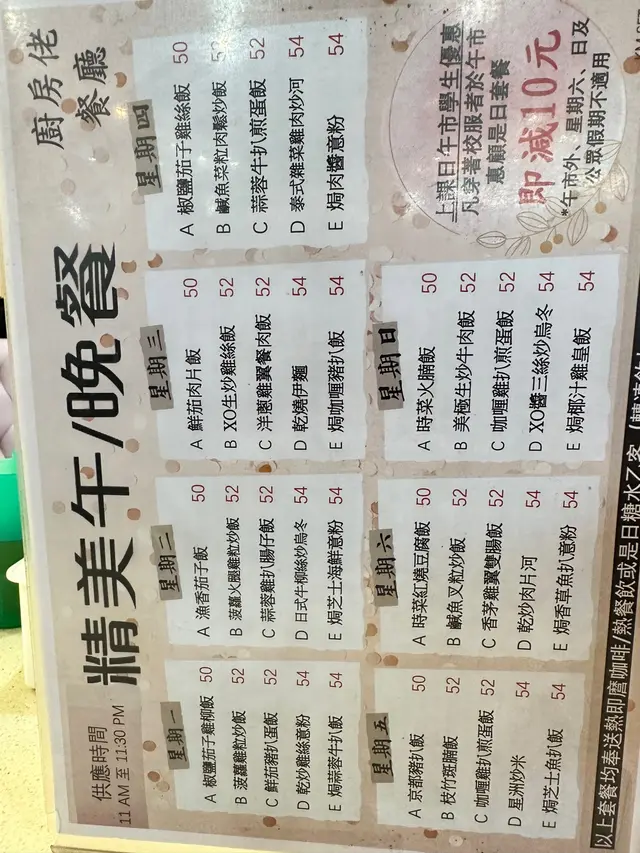 供應時間
11 AM 至 11:30 PM
精美午/晚餐
廚房佬
餐廳
星期一
A 椒鹽茄子雞柳飯 50
B 菠蘿雞粒炒飯 52
C 鮮茄豬扒蛋飯 52
D 乾炒雞絲意粉 54
E 焗蒜蓉牛扒飯 54
星期二
A 漁香茄子飯 50
B 菠蘿火腿雞粒炒飯 52
C 蒜蓉雞扒腸仔飯 52
D 日式牛柳絲炒烏冬 54
E 焗芝士海鮮意粉 54
星期三
A 鮮茄肉片飯 50
B XO生炒雞絲飯 52
C 洋蔥雞翼餐肉飯 52
D 乾燒伊麵 54
E 焗咖喱豬扒飯 54
星期四
A 椒鹽茄子雞絲飯 50
B 鹹魚菜粒肉鬆炒飯 52
C 蒜蓉牛扒煎蛋飯 52
D 泰式雜菜雞肉炒河 54
E 焗肉醬意粉 54
星期五
A 京都豬扒飯 50
B 枝竹斑腩飯 52
C 咖喱雞扒煎蛋飯 52
D 星洲炒米 54
E 焗芝士魚扒飯 54
星期六
A 時菜紅燒豆腐飯 50
B 鹹魚叉粒炒飯 52
C 香茅雞翼雙腸飯 52
D 乾炒肉片河 54
E 焗香草魚扒意粉 54
星期日
A 時菜火腩飯 50
B 美極生炒牛肉飯 52
C 咖喱雞扒煎蛋飯 52
D XO醬三絲炒烏冬 54
E 焗椰汁雞皇飯 54
上課日午市學生優惠
凡穿著校服者於午市
惠顧是日套餐
即減10元
*午市外、星期六、日及
公眾假期不適用
以上套餐均奉送熱即磨咖啡/熱餐飲或是日糖水乙客